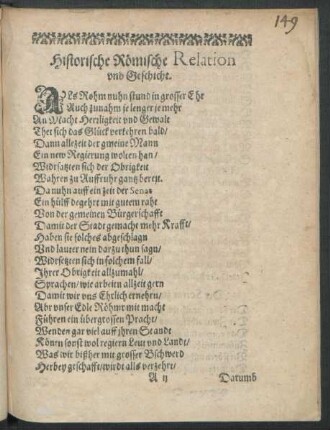 149
Historische Römische Relation
vnd Geschicht.
ALs Rohm nuhn stund in grosser Ehr
Auch zunahm je lenger je mehr
An Macht Herrligkeit vnd Gewalt
Thet sich das Glück verkehren bald/
Dann allezeit der gmeine Mann
Ein new Regierung wolten han/
Widrsatzten sich der Obrigkeit
Wahren zu Auffruhr gantz bereit.
Da nuhn auff ein zeit der Senat
Ein hülff begehrt mit gutem raht
Von der gemeinen Bürgerschafft
Damit der Stadt gemacht mehr Krafft/
Haben sie solches abgeschlagn
Vnd lauter nein darzu thun sagn/
Widrsetzten sich in solchem fall/
Jhrer Obrigkeit allzumahl/
Sprachen/ wir arbeitn allzeit gern
Damit wir vns Ehrlich ernehrn/
Abr vnser Edle Röhmr mit macht
Führen ein übergrossen Pracht/
Wenden gar viel auff jhren Standt
Köntn sonst wol regiern Leut vnd Landt/
Was wir bißher mit grosser Bschwerd
Herbey geschafft/ wirdt alls verzehrt/
A ij Darumb